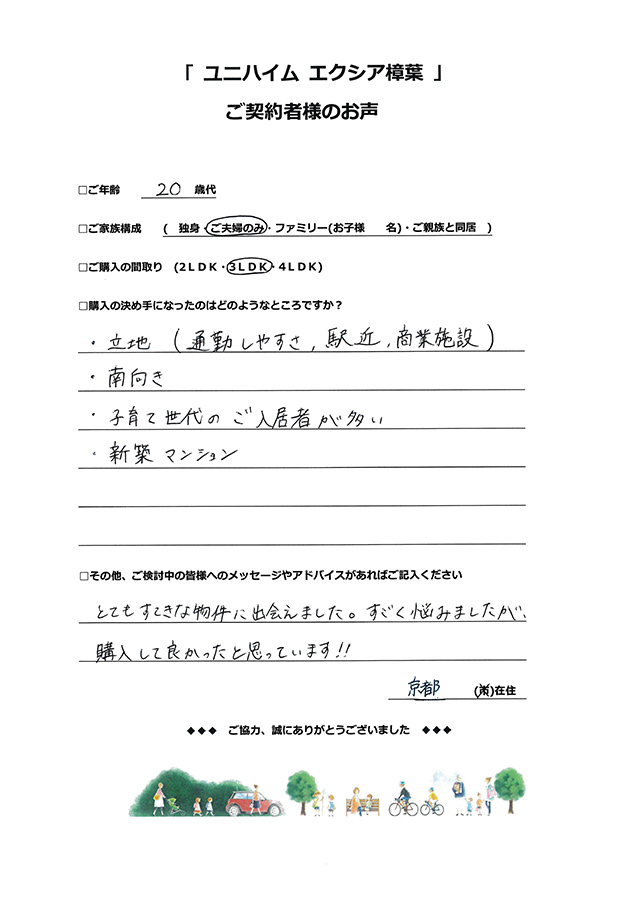 「 ユニハイム エクシア樟葉 」
ご契約者様のお声
□ご年齢 20 歳代
□ご家族構成 ( 独身・ご夫婦のみ・ファミリー(お子様 名)・ご親族と同居 )
□ご購入の間取り (2LDK・3LDK・4LDK)
□購入の決め手になったのはどのようなところですか？
・立地 (通勤しやすさ, 駅近, 商業施設)
・南向き
・子育て世代のご入居者が多い
・新築マンション
□その他、ご検討中の皆様へのメッセージやアドバイスがあればご記入ください
とてもすてきな物件に出会えました。すごく悩みましたが、
購入して良かったと思っています!!
京都 ()在住
◆◆◆ ご協力、誠にありがとうございました ◆◆◆